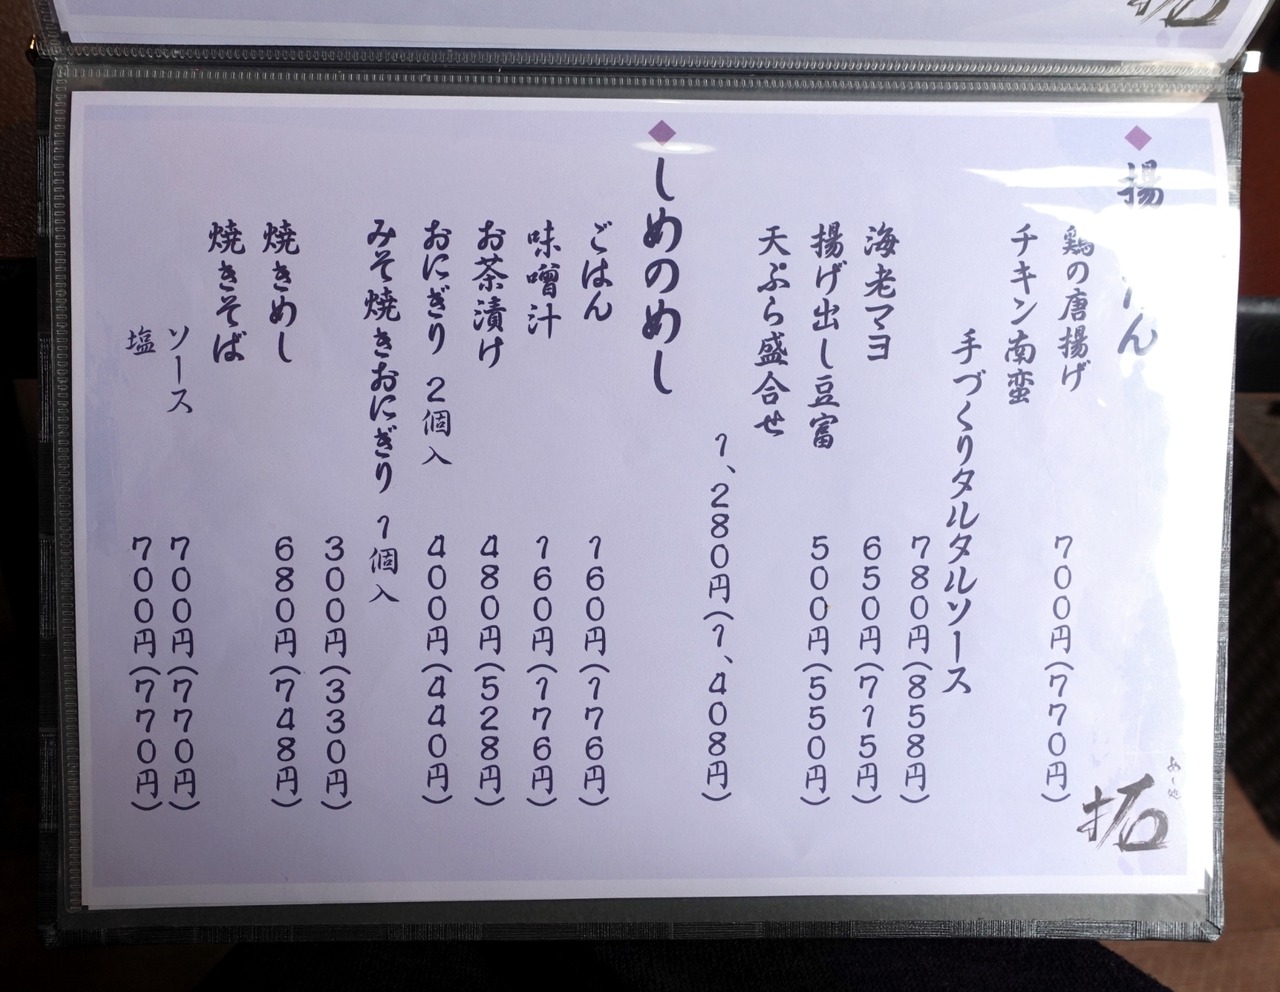 鶏の唐揚げ
700円(770円)
チキン南蛮
手づくりタルタルソース
780円(858円)
海老マヨ
650円(715円)
揚げ出し豆富
500円(550円)
天ぷら盛合せ
1、280円(1、408円)
◆しめのめし
ごはん
160円(176円)
味噌汁
160円(176円)
お茶漬け
480円(528円)
おにぎり 2個入
400円(440円)
みそ焼きおにぎり 1個入
300円(330円)
焼きめし
680円(748円)
焼きそば
ソース
700円(770円)
塩
700円(770円)
めし処
拓